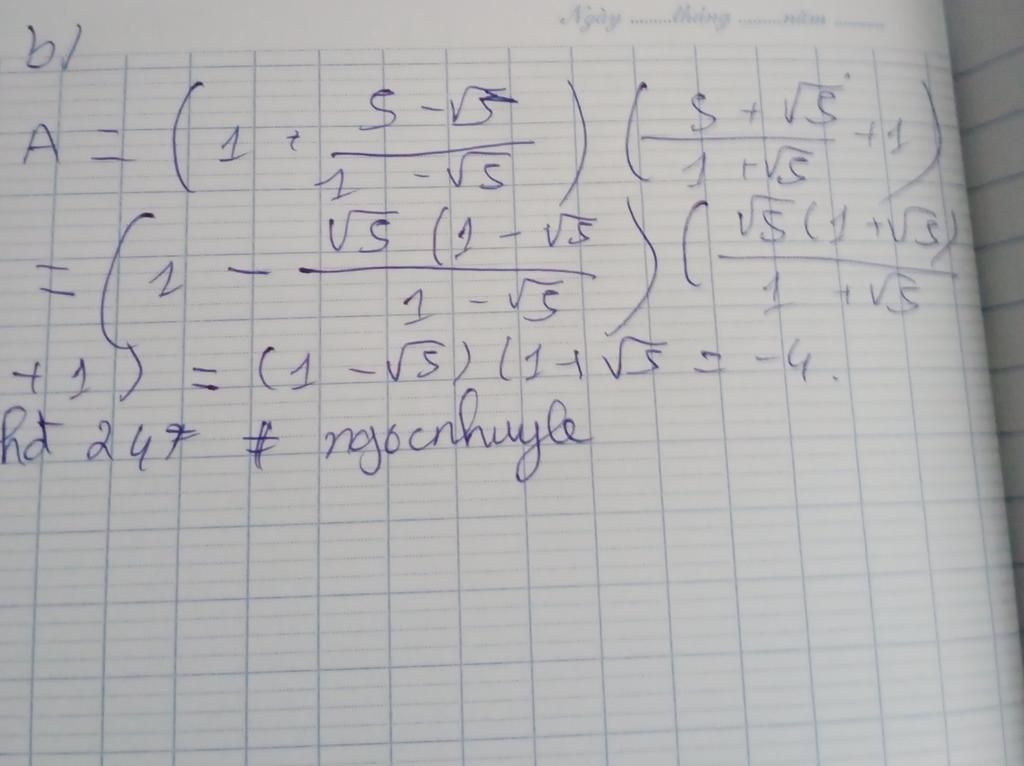 Ngày ........tháng ........năm ..........
b/
A = (1 + \frac{5 - √5}{1 - √5}) (\frac{5 + √5}{1 + √5} + 1)
= (1 - \frac{√5 (1 - √5}{1 - √5}) (\frac{√5 (1 + √5)}{1 + √5}
+ 1) = (1 - √5) (1 + √5 = -4.
hđ 247 # ngocnhuyle